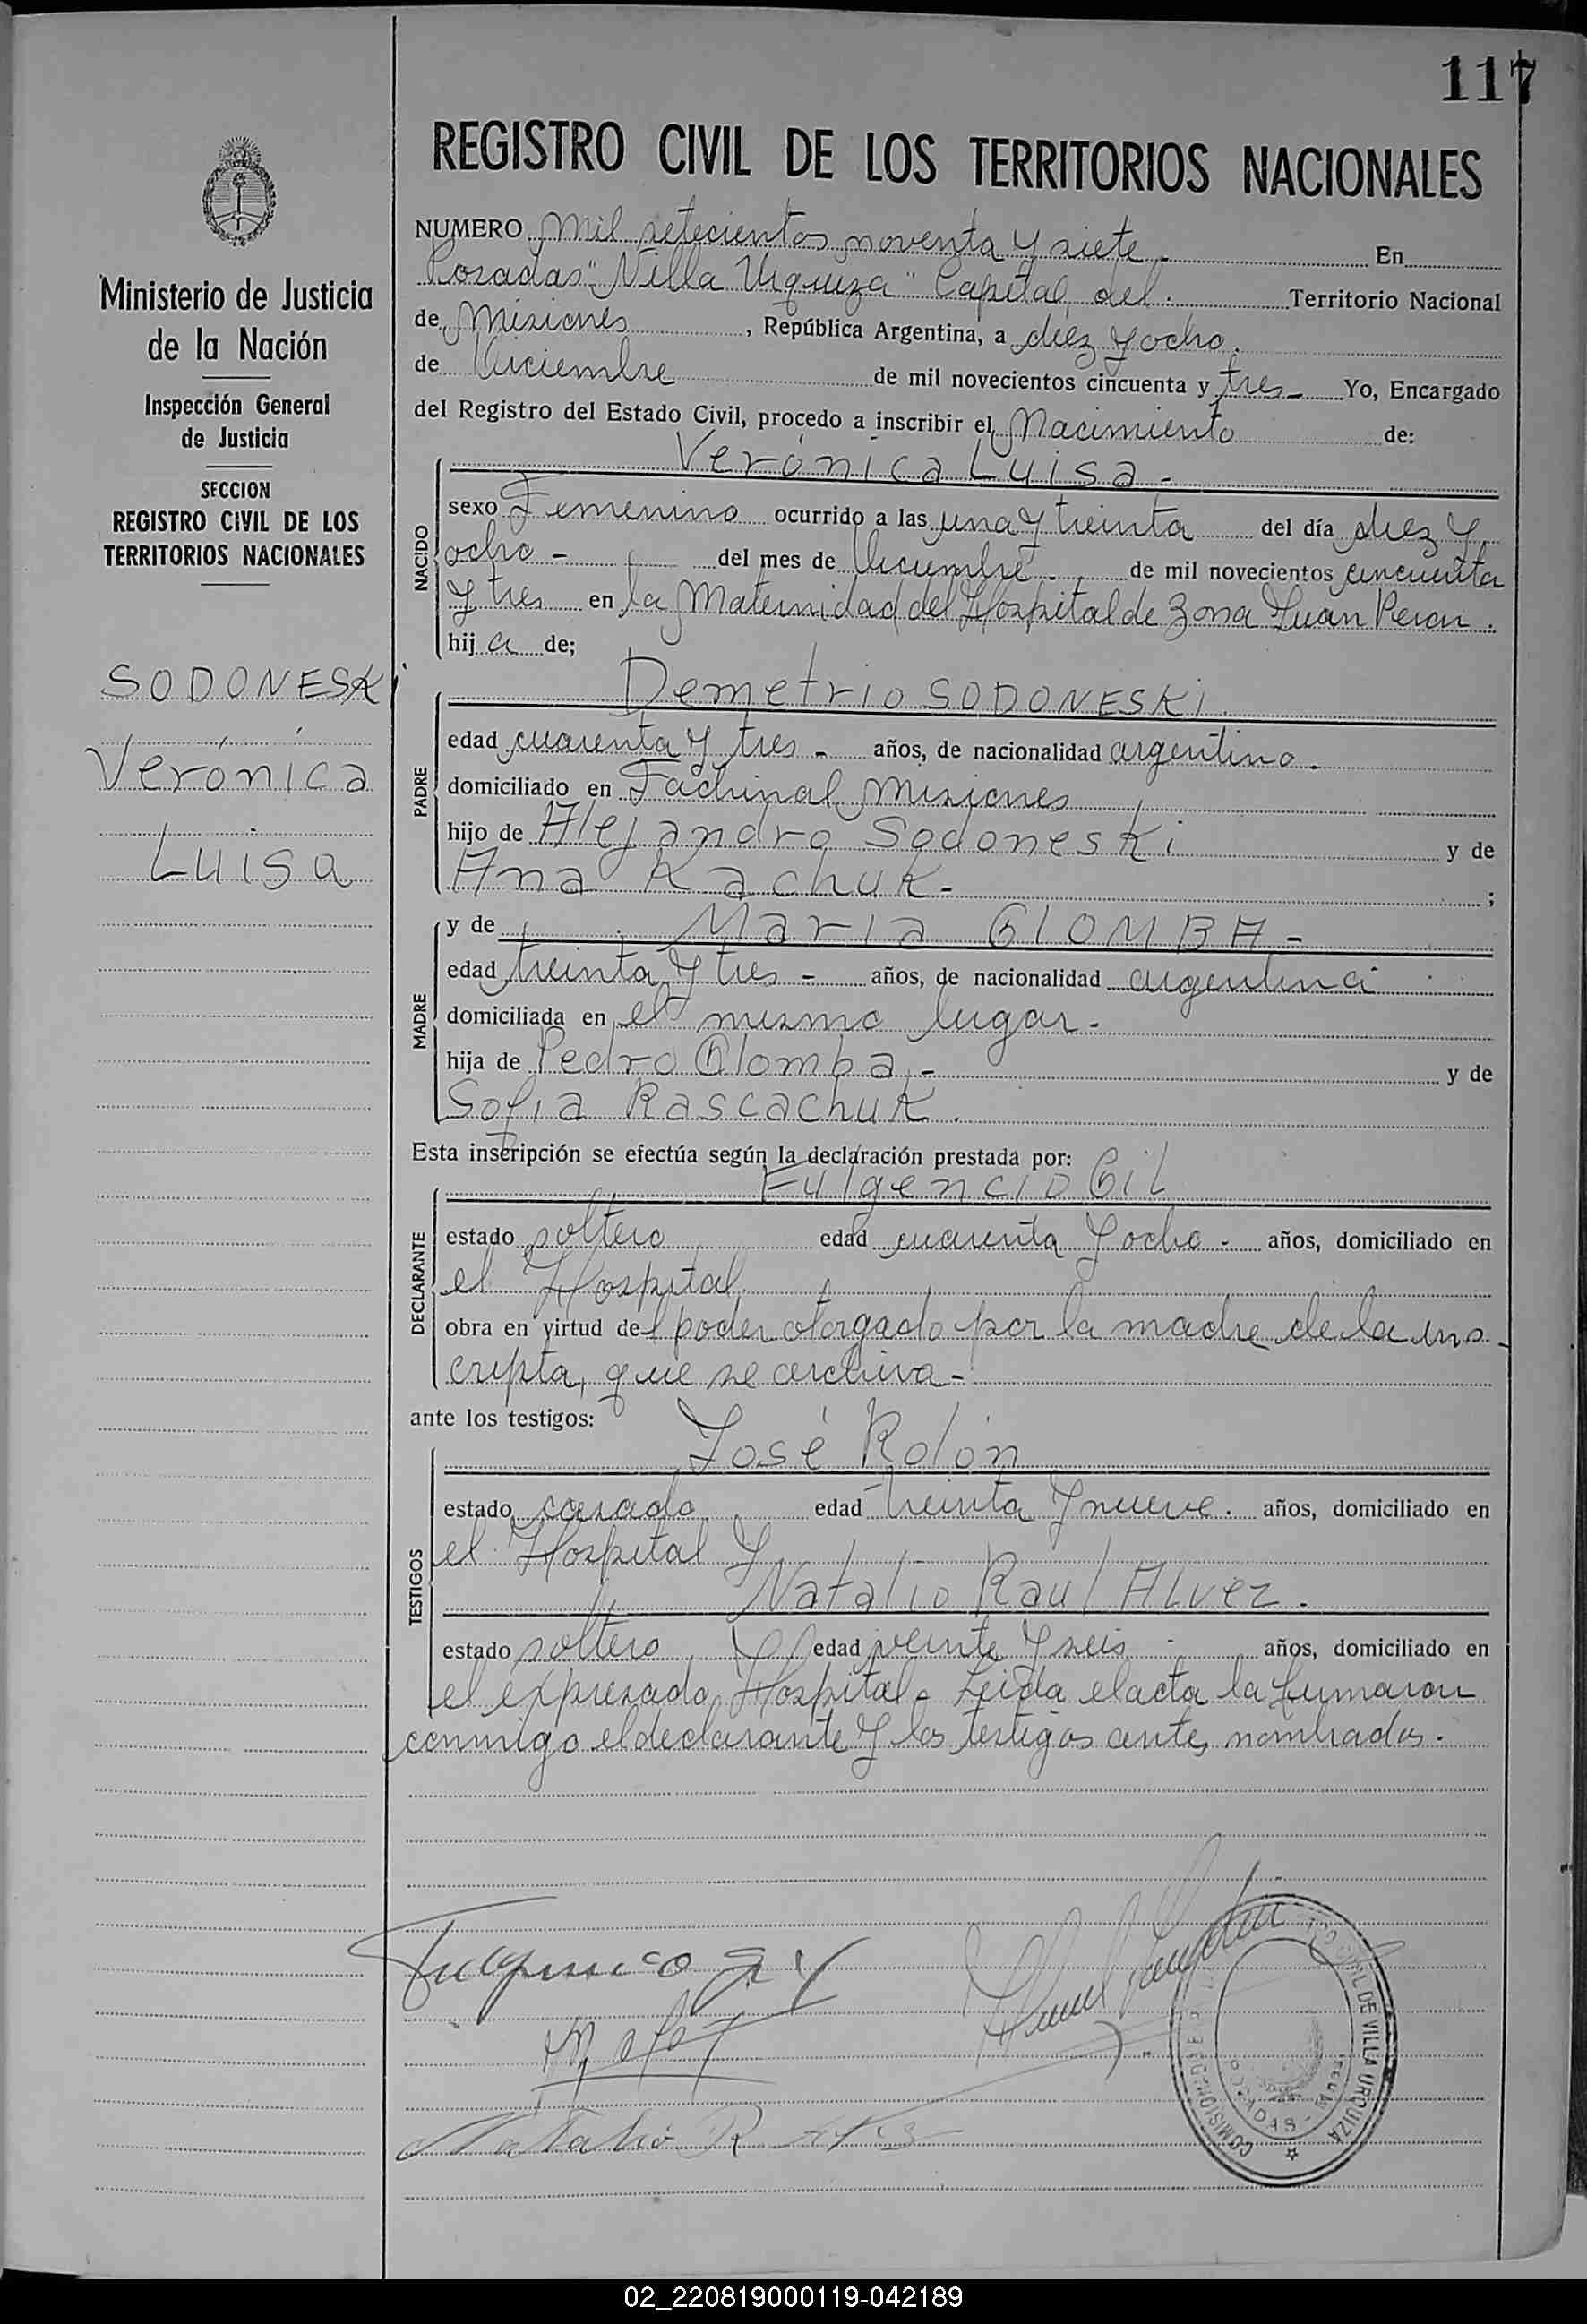 117
REGISTRO CIVIL DE LOS TERRITORIOS NACIONALES
Ministerio de Justicia
de la Nación
Inspección General
de Justicia
SECCION
REGISTRO CIVIL DE LOS
TERRITORIOS NACIONALES
SODONESKi
Verónica
Luisa
NUMERO Mil setecientos noventa y siete - En
Posadas "Villa Urquiza" Capital del. Territorio Nacional
de Misiones, República Argentina, a diez y ocho.
de Diciembre de mil novecientos cincuenta y tres - Yo, Encargado
del Registro del Estado Civil, procedo a inscribir el Nacimiento de:
Verónica Luisa -
NACIDO
sexo Femenino ocurrido a las una y treinta del día diez y
ocho - del mes de Diciembre. de mil novecientos cincuenta
y tres en la Maternidad del Hospital de Zona Juan Peron.
hij a de;
Demetrio SODONESKi.
PADRE
edad cuarenta y tres - años, de nacionalidad argentino.
domiciliado en Fachinal Misiones
hijo de Alejandro Sodoneski y de
Ana Kachuk - ;
y de Maria GlOMBA -
MADRE
edad treinta y tres - años, de nacionalidad argentina
domiciliada en el mismo lugar -
hija de Pedro Glomba, - y de
Sofia Rascachuk.
Esta inscripción se efectúa según la declaración prestada por:
Fulgencio Gil
DECLARANTE
estado soltero edad cuarenta y ocho - años, domiciliado en
el Hospital
obra en virtud del poder otorgado por la madre de la ins-
cripta, que se archiva -
ante los testigos:
José Rolón
TESTIGOS
estado casado edad treinta y nueve. años, domiciliado en
el Hospital y
Natalio Raul Alvez.
estado soltero edad veinte y seis - años, domiciliado en
el expresado Hospital. Leida el acta la firmaron
conmigo el declarante y los testigos antes nombrados.
Fulgencio Gil
Natalio R
DE VILLA URQUIZA
POSADAS
02_220819000119-042189